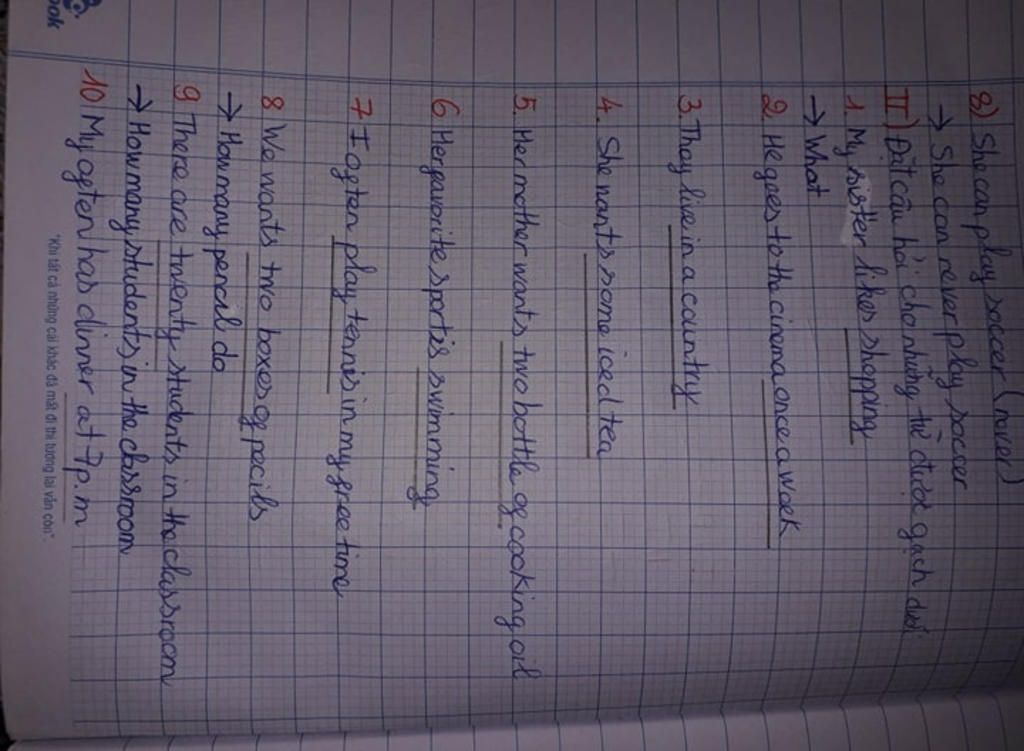 8) She can play soccer (never)
→ She can never play soccer
II) Đặt câu hỏi cho những từ được gạch dưới
1. My sister likes shopping
→ What
2. He goes to the cinema once a week
3. They live in a country
4. She wants some iced tea
5. Her mother wants two bottle of cooking oil
6 Her favorite sport is swimming
7 I often play tennis in my free time
8 We wants two boxes of pecils
→ How many pencil do
9 There are twenty students in the classroom
→ How many students in the classroom
10 My often has dinner at 7p.m
"Khi tất cả những cái khác đã mất đi thì tương lai vẫn còn".
ook